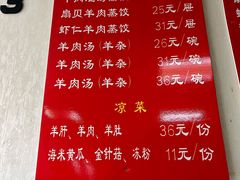 扇贝羊肉蒸饺 25元/屉
虾仁羊肉蒸饺 31元/屉
羊肉汤(羊杂) 26元/碗
羊肉汤(羊杂) 31元/碗
羊肉汤(羊杂) 36元/碗
凉菜
羊肝、羊肉、羊肚 36元/份
海米黄瓜、金针菇、冻粉 11元/份